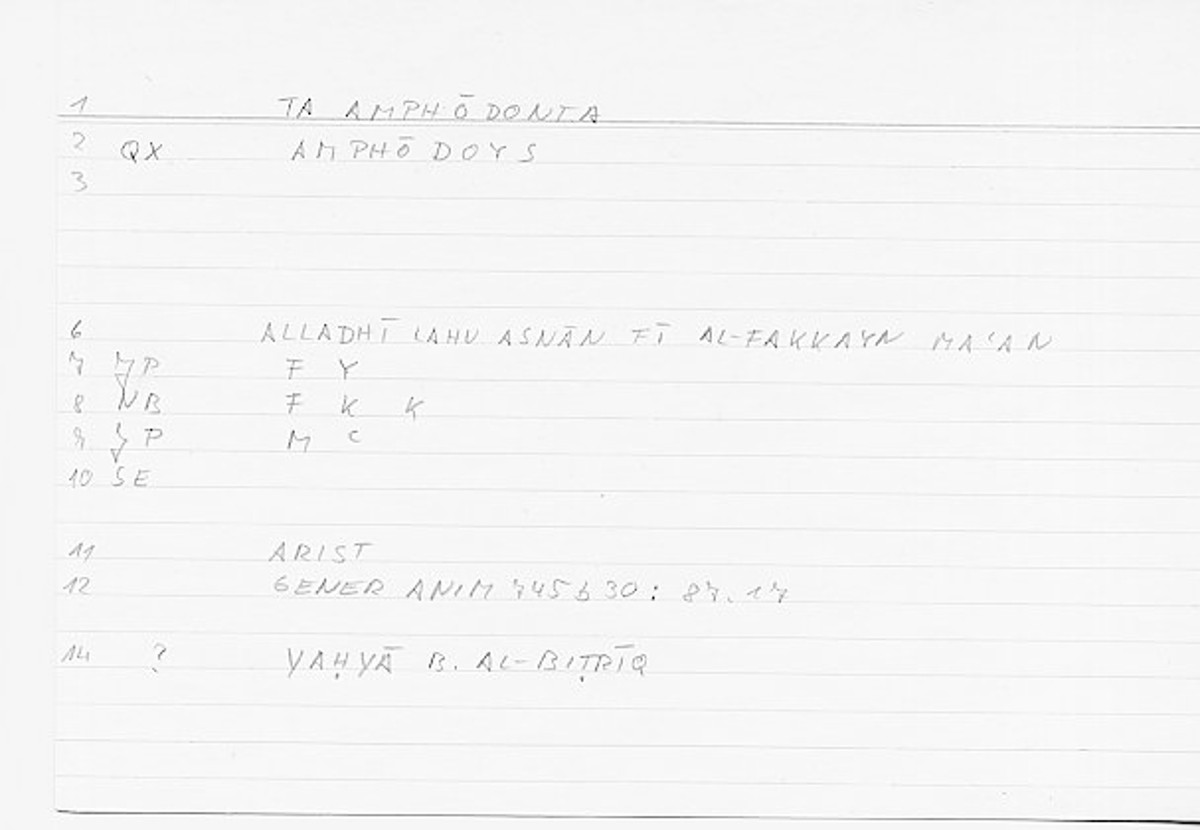 1 TA AMPHŌDONTA
2 QX AMPHŌDOYS
3
6 ALLADHĪ LAHU ASNĀN FĪ AL-FAKKAYN MAʿAN
7 JP F Y
8 NB F K K
9 JP M ʿ
10 SE
11 ARIST
12 GENER ANIM 745b30: 87.17
14 ? YAḤYĀ B. AL-BIṬRĪQ